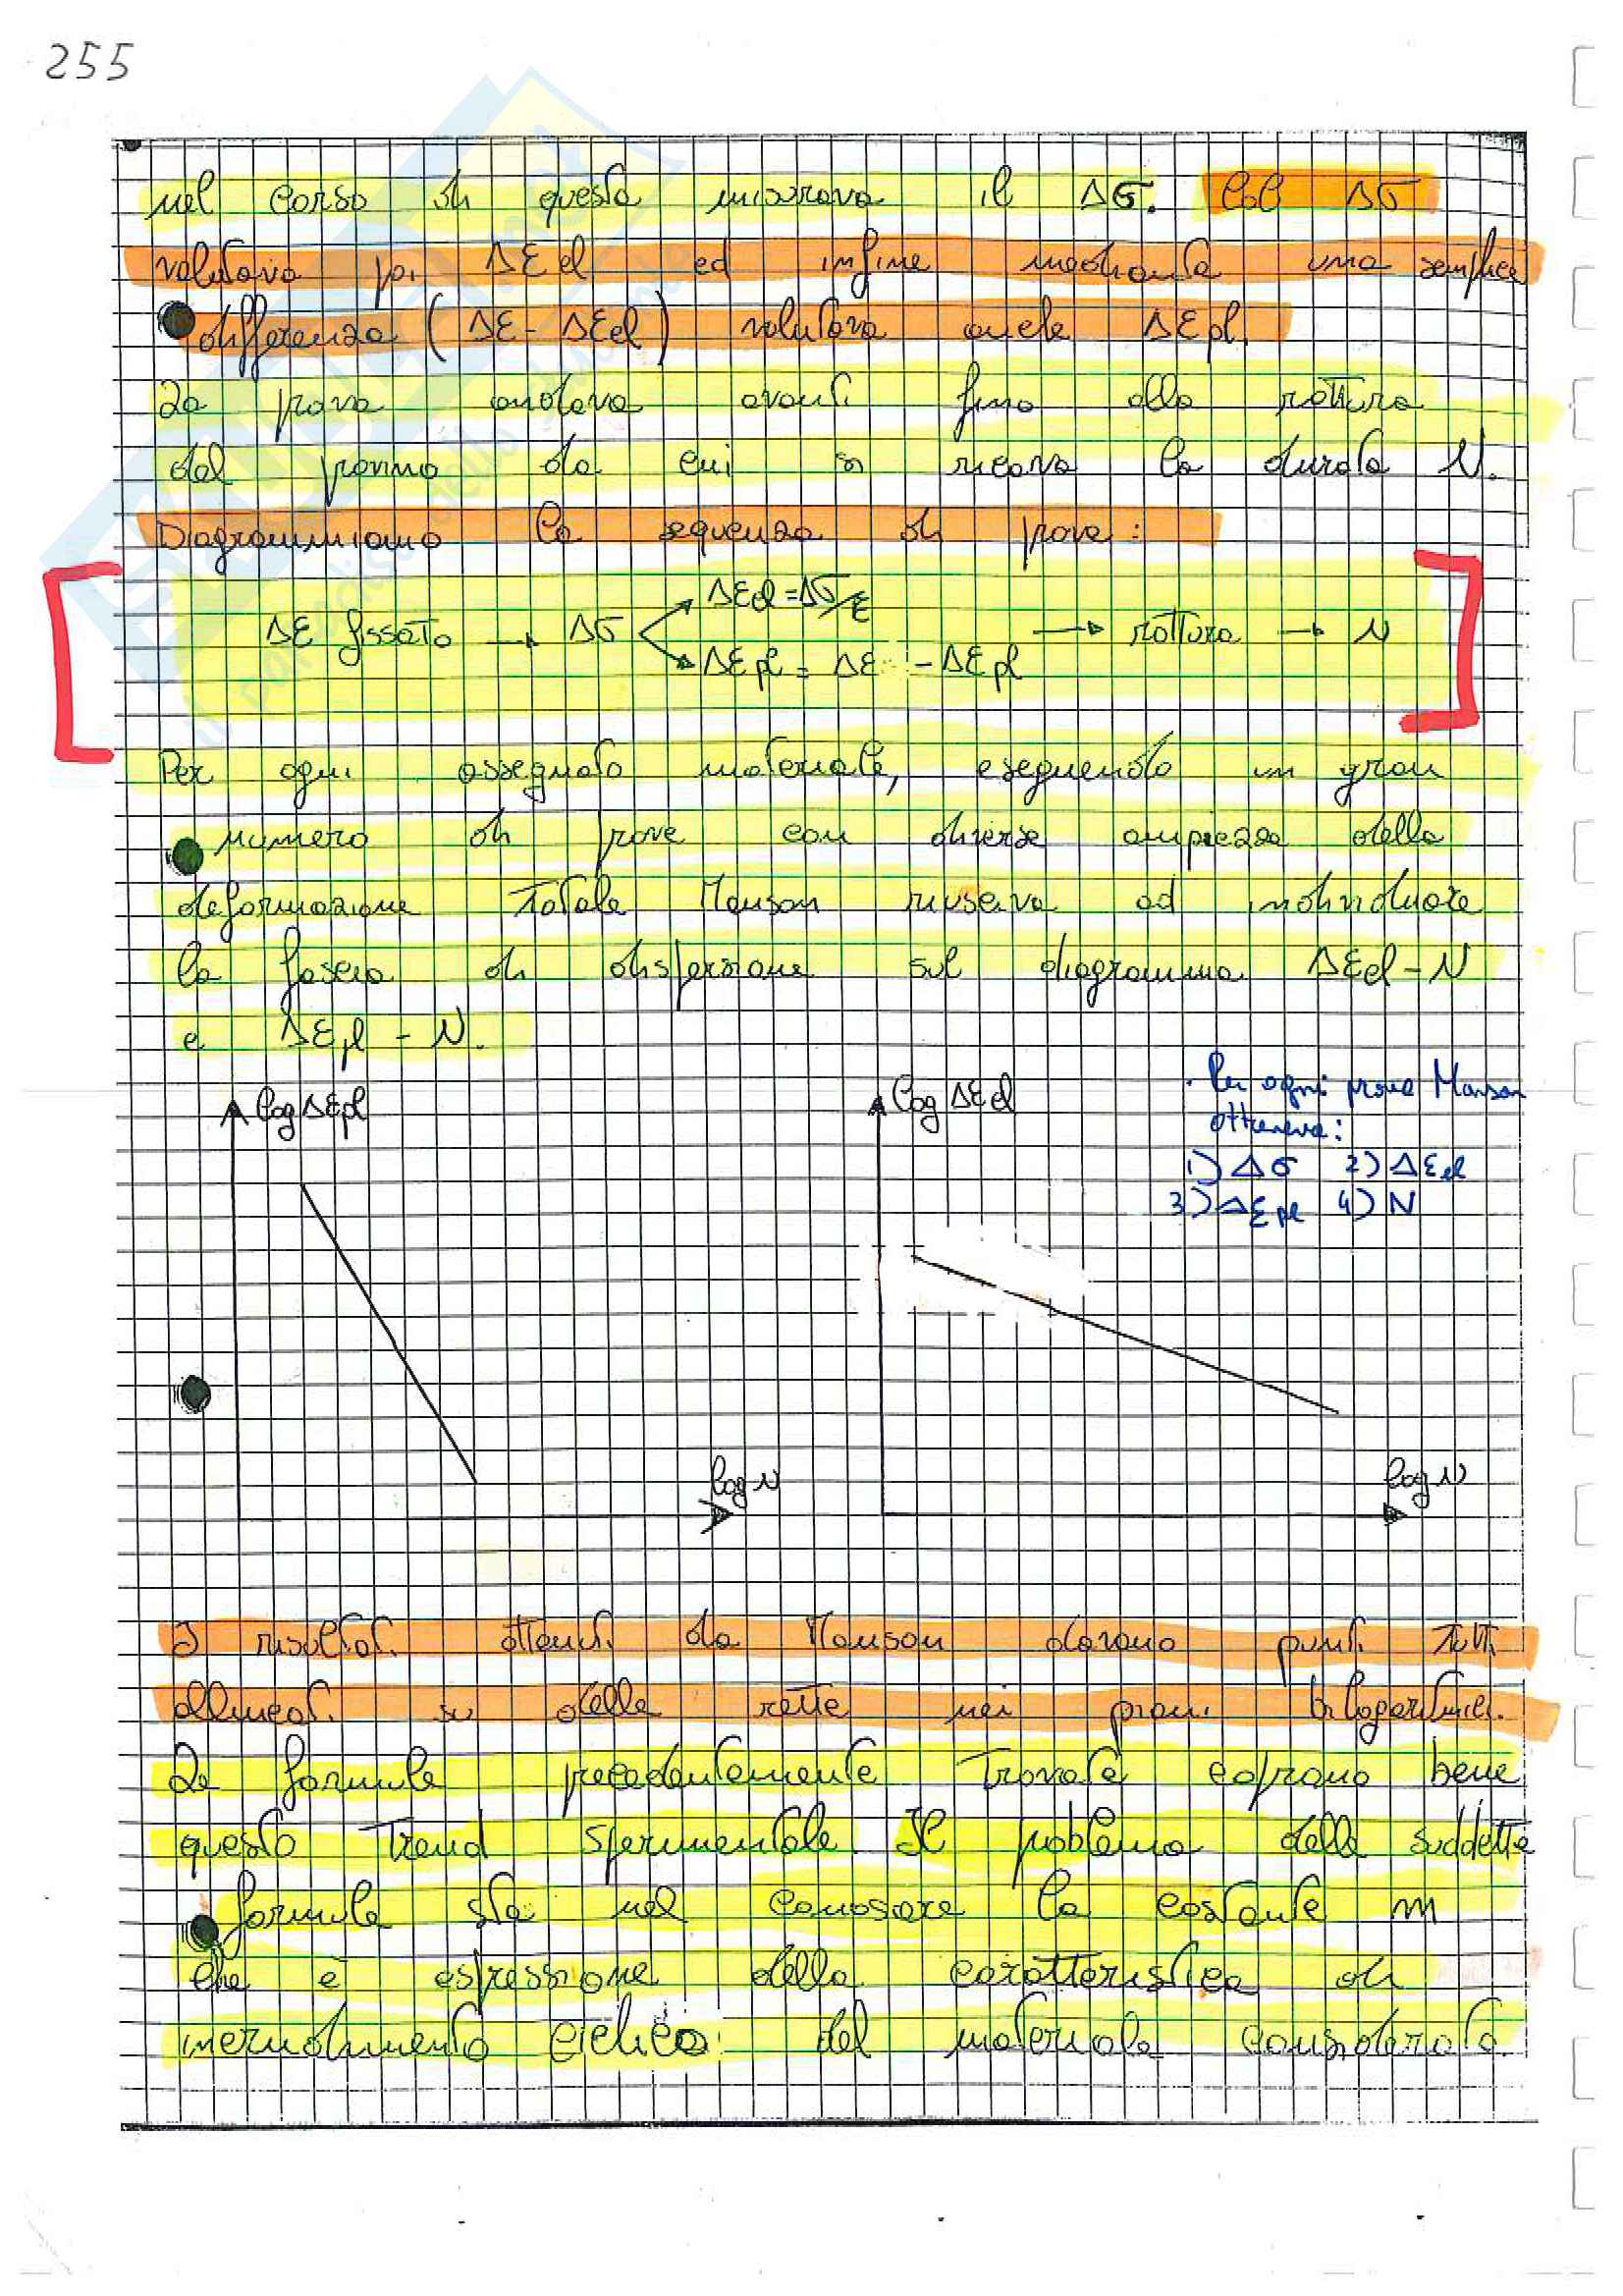 255
nel corso di questa misurava il Δσ. Col Δσ
valutava poi ΔEel ed infine mediante una semplice
differenza (ΔE - ΔEel) valutava anche ΔEpl.
La prova andava avanti fino alla rottura
del provino da cui si ricava la durata N.
Diagrammiamo la sequenza di prova:
ΔEel = Δσ/E
ΔE fissato → Δσ → rottura → N
ΔEpl = ΔE - ΔEpl
Per ogni assegnato materiale, eseguendo un gran
numero di prove con diverse ampiezza della
deformazione Totale Manson riusciva ad individuare
la fascia di dispersione sul diagramma ΔEel - N
e ΔEpl - N.
· Per ogni prova Manson
otteneva:
1) Δσ 2) ΔEel
3) ΔEpl 4) N
log ΔEpl
log ΔEel
log N
log N
I risultati ottenuti da Manson davano punti Tutti
allineati su delle rette nei piani bilogaritmici.
Le formule precedentemente Trovate coprano bene
questo Trend sperimentale. Il problema delle suddette
formule sta nel conoscere la costante m
che è espressione della caratteristica di
incrudimento ciclico del materiale considerato.